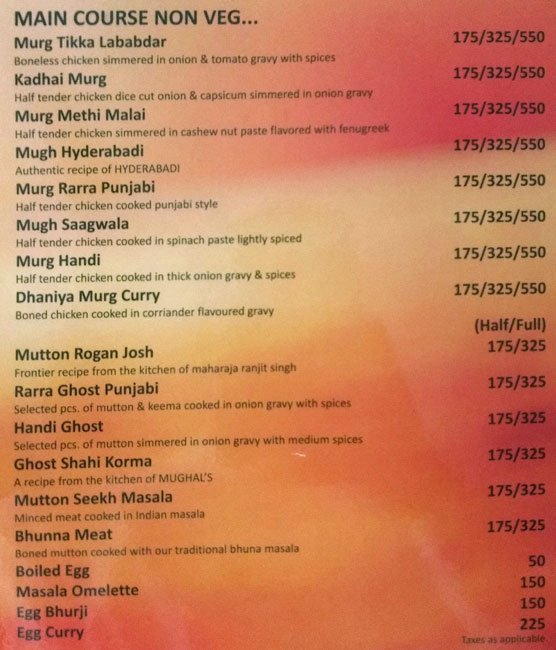 MAIN COURSE NON VEG...
Murg Tikka Lababdar 175/325/550
Boneless chicken simmered in onion & tomato gravy with spices
Kadhai Murg 175/325/550
Half tender chicken dice cut onion & capsicum simmered in onion gravy
Murg Methi Malai 175/325/550
Half tender chicken simmered in cashew nut paste flavored with fenugreek
Mugh Hyderabadi 175/325/550
Authentic recipe of HYDERABADI
Murg Rarra Punjabi 175/325/550
Half tender chicken cooked punjabi style
Mugh Saagwala 175/325/550
Half tender chicken cooked in spinach paste lightly spiced
Murg Handi 175/325/550
Half tender chicken cooked in thick onion gravy & spices
Dhaniya Murg Curry 175/325/550
Boned chicken cooked in corriander flavoured gravy
(Half/Full)
Mutton Rogan Josh 175/325
Frontier recipe from the kitchen of maharaja ranjit singh
Rarra Ghost Punjabi 175/325
Selected pcs. of mutton & keema cooked in onion gravy with spices
Handi Ghost 175/325
Selected pcs. of mutton simmered in onion gravy with medium spices
Ghost Shahi Korma 175/325
A recipe from the kitchen of MUGHAL'S
Mutton Seekh Masala 175/325
Minced meat cooked in Indian masala
Bhunna Meat 175/325
Boned mutton cooked with our traditional bhuna masala
Boiled Egg 50
Masala Omelette 150
Egg Bhurji 150
Egg Curry 225
Taxes as applicable